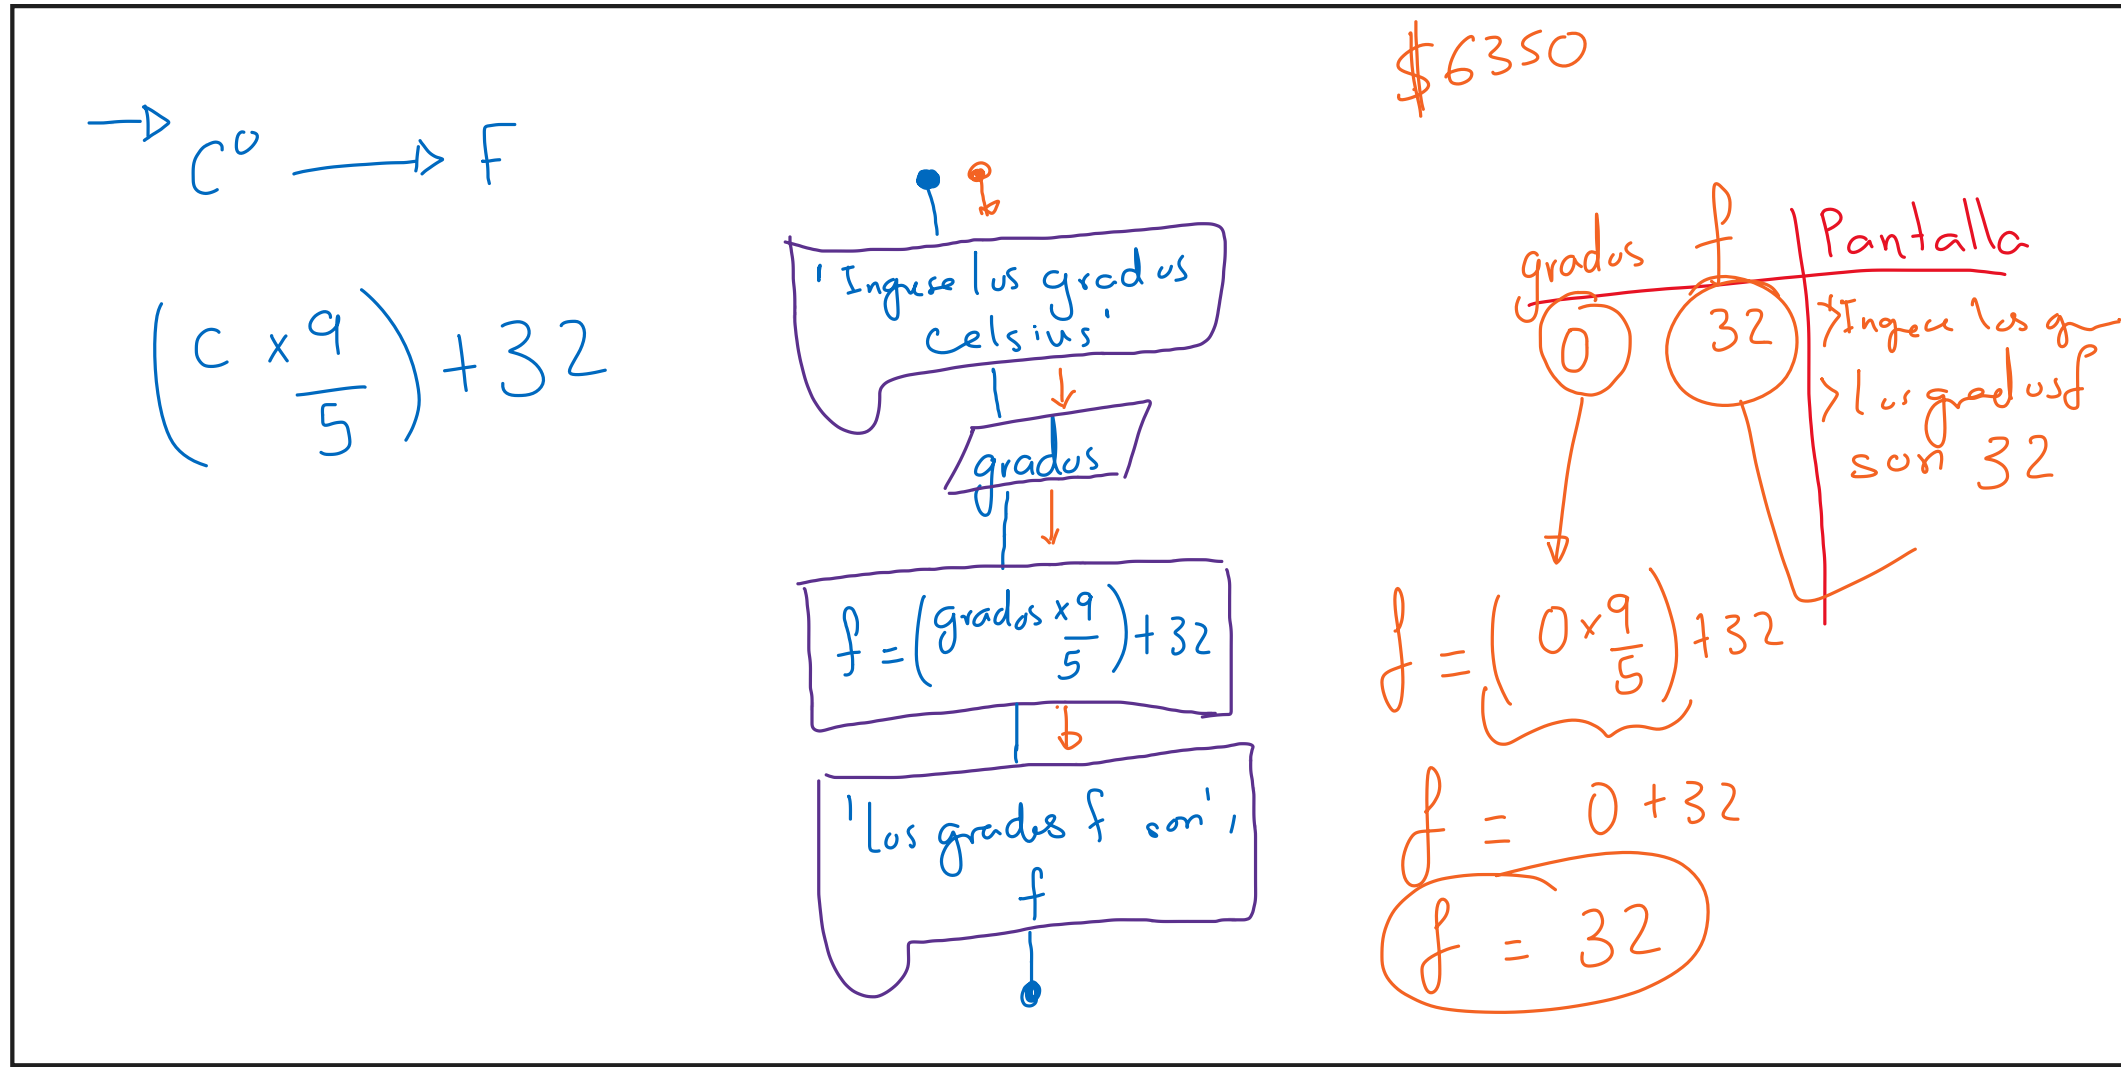 $6350
C° → F
(C x 9/5) + 32
'Ingrese los grados
Celsius'
grados
f = (grados x 9/5) + 32
'los grados f son',
f
grados f Pantalla
0 32
>Ingrese los g
>los grados f
son 32
f = (0 x 9/5) + 32
f = 0 + 32
f = 32